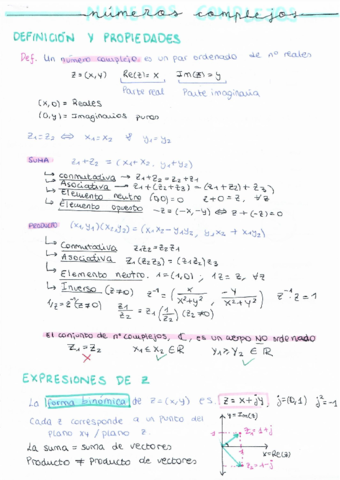 números complejos
DEFINICIÓN Y PROPIEDADES
Def. Un número complejo es un par ordenado de nº reales
z=(x,y) Re(z)=x Im(z)=y
Parte real Parte imaginaria
(x,0) = Reales
(0,y) = Imaginarios puros
z1=z2 ⇔ x1=x2 y y1=y2
SUMA z1+z2 = (x1+x2, y1+y2)
↳ conmutativa → z1+z2=z2+z1
↳ Asociativa → z1+(z2+z3) = (z1+z2)+z3
↳ Elemento neutro (0,0)=0 z+0=z, ∀z
↳ Elemento opuesto -z=(-x,-y) ⇔ z+(-z)=0
PRODUCTO (x1y1)(x2y2) = (x1x2-y1y2, y1x2+x1y2)
↳ Conmutativa z1z2=z2z1
↳ Asociativa z1(z2z3)=(z1z2)z3
↳ Elemento neutro. 1=(1,0); 1z=z, ∀z
↳ Inverso (z≠0) z⁻¹=(x/x²+y², -y/x²+y²) z⁻¹·z=1
1/z=z⁻¹(z≠0) z1/z2 = z1(1/z2) (z2≠0)
El conjunto de nº complejos, ℂ, es un cuerpo NO ordenado
z1=z2 x1≤x2 ∈ℝ y1≥y2 ∈ℝ
EXPRESIONES DE Z
La forma binómica de z=(x,y) es: z=x+jy j=(0,1) j²=-1
Cada z corresponde a un punto del
plano xy / plano z.
La suma = suma de vectores
Producto ≠ producto de vectores
y=Im(z)
z1=1+j
x=Re(z)
z2=1-j